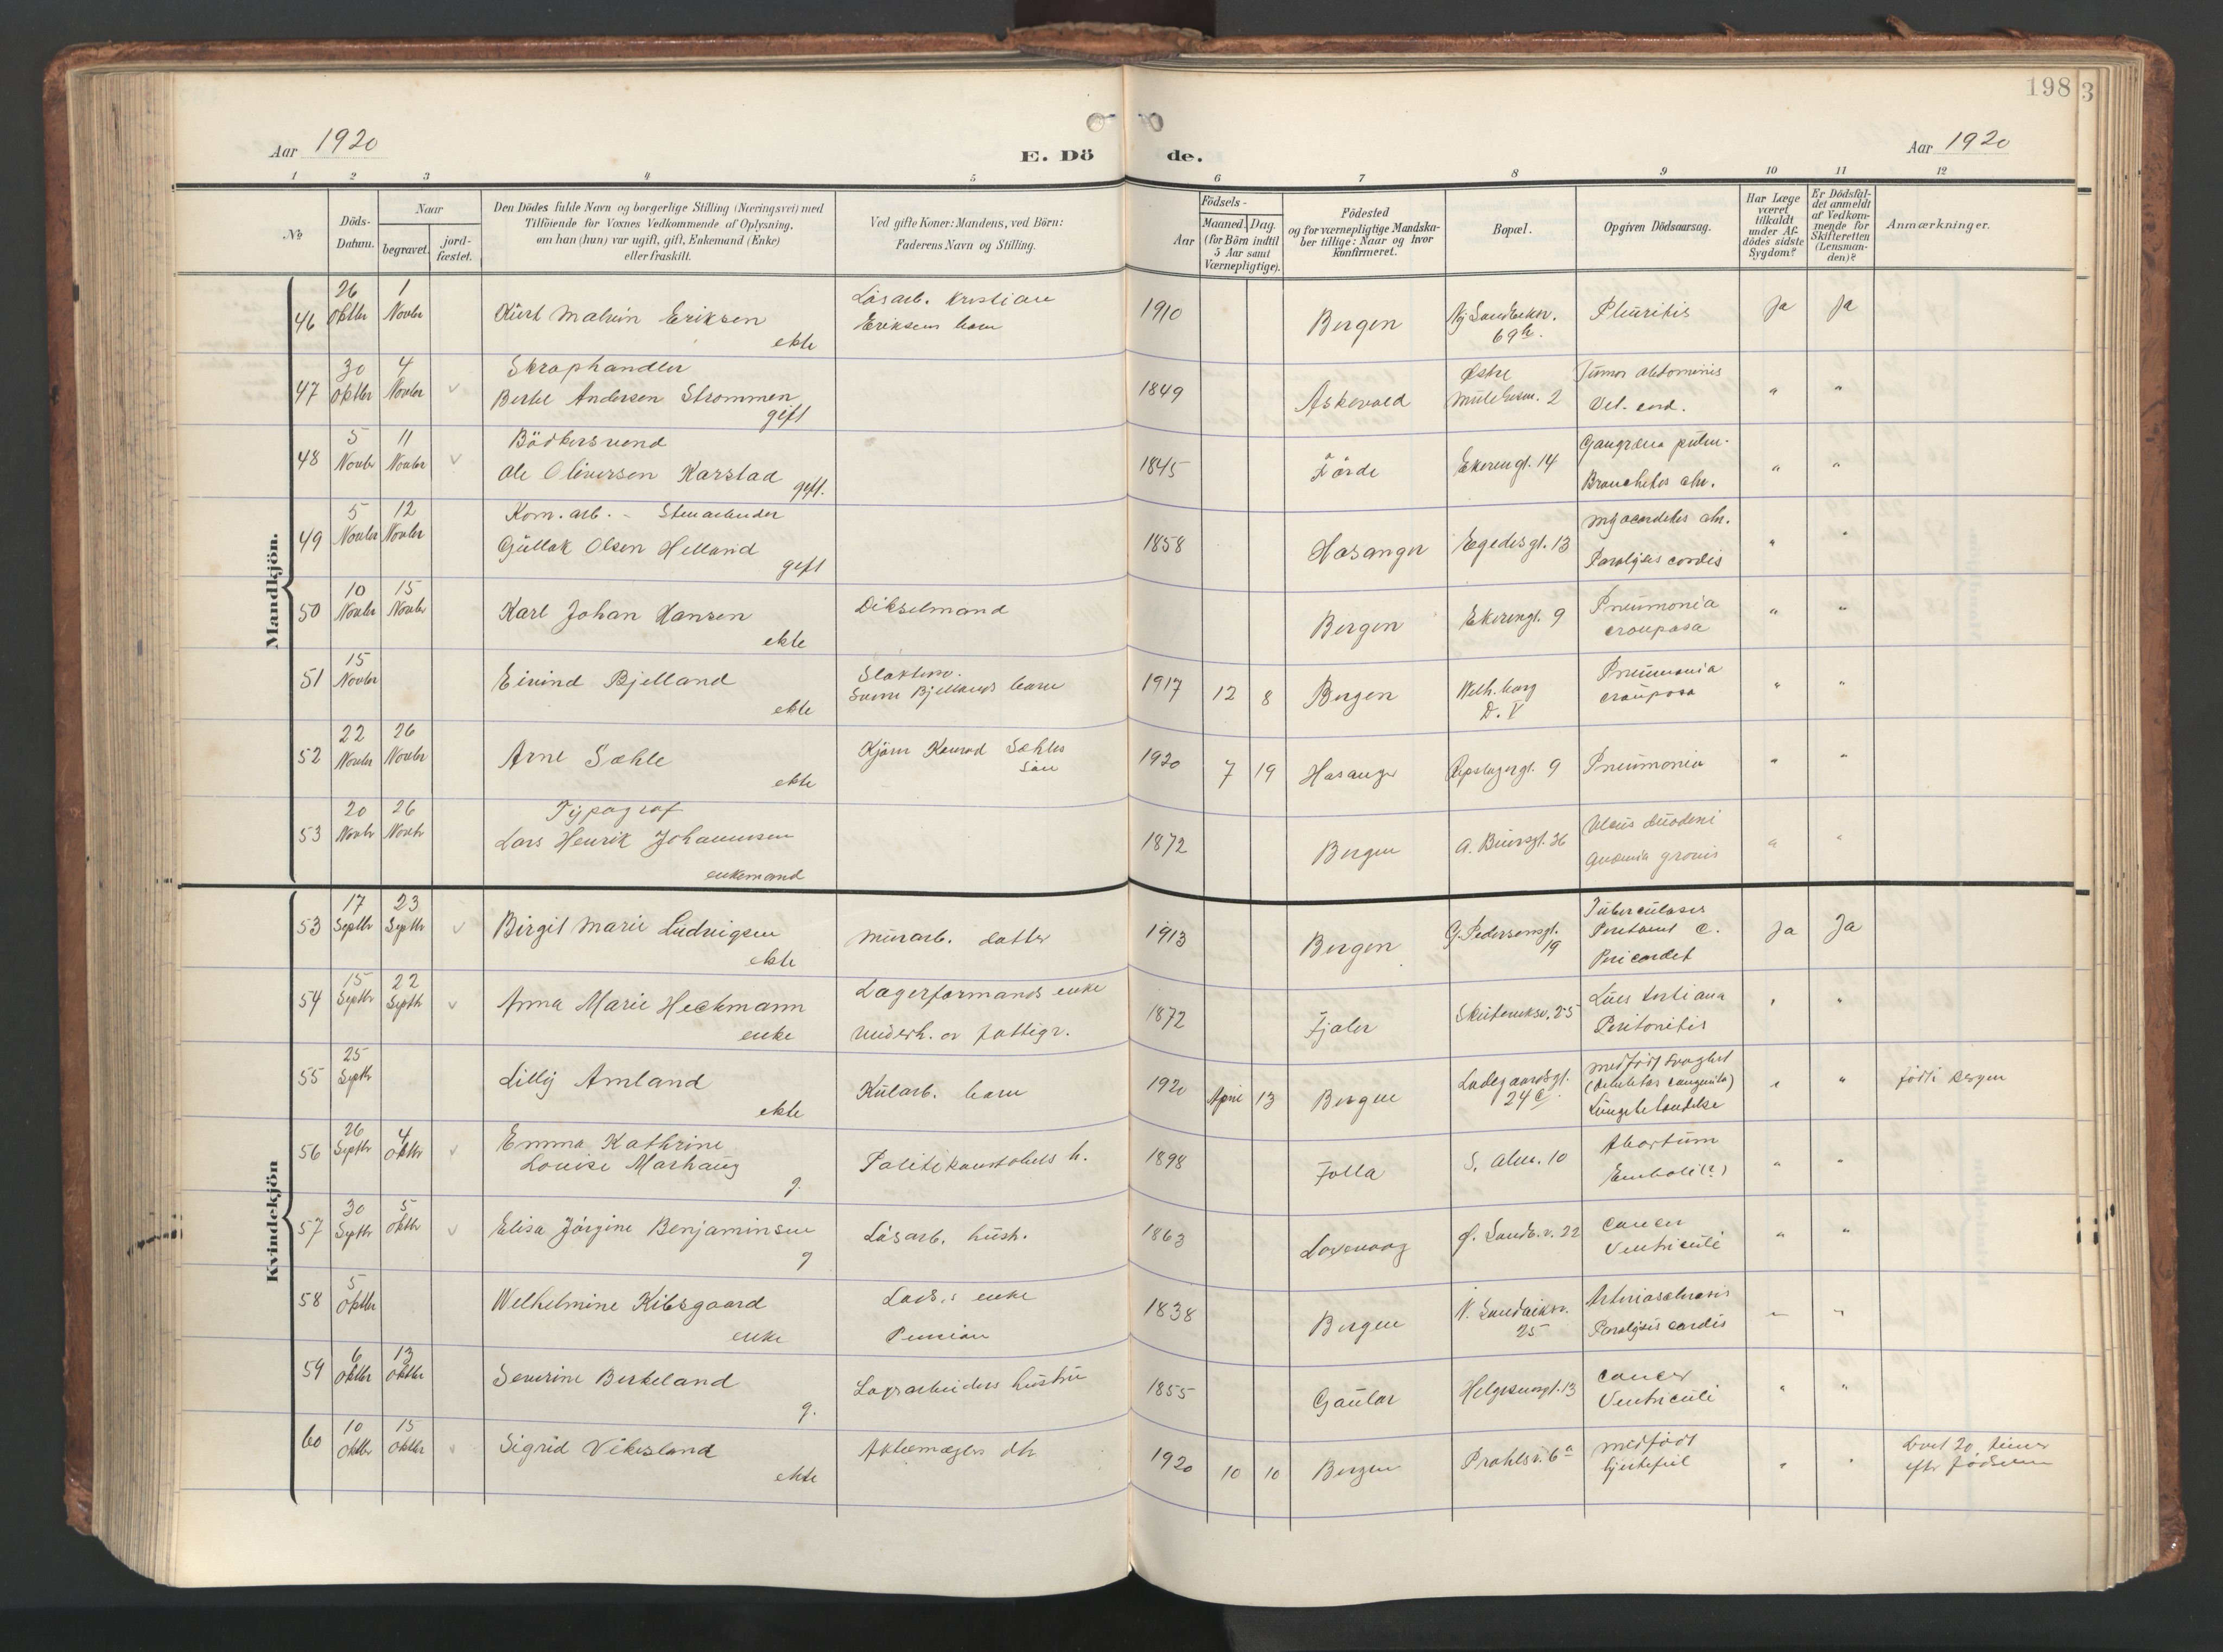 198
3
Aar 1920
E. Dö
de.
Aar 1920
1 2 3 4 5 6 7 8 9 10 11 12
No
Döds-
Datum.
Naar
begravet.
jord-
fæstet.
Den Dödes fulde Navn og borgerlige Stilling (Næringsvei) med
Tilföiende for Voxnes Vedkommende af Oplysning,
om han (hun) var ugift, gift, Enkemand (Enke)
eller fraskilt.
Ved gifte Koner: Mandens, ved Börn:
Faderens Navn og Stilling.
Födsels-
Aar
Maaned.
Dag.
(for Börn indtil
5 Aar samt
Værnepligtige).
Födested
og for værnepligtige Mandska-
ber tillige: Naar og hvor
konfirmeret.
Bopæl.
Opgiven Dödsaarsag.
Har Læge
været
tilkaldt
under Af-
dödes sidste
Sygdom?
Er Dödsfal-
det anmeldt
af Vedkom-
mende for
Skifteretten
(Lensman-
den)?
Anmærkninger.
Mandkjön.
46 26 Oktbr 1 Novbr Kurt Malvin Eriksen ekte Løsarb. Kristian Eriksens barn 1910 Bergen Ny Sandviksv. 69 b. Pleuritis Ja Ja
47 30 Oktbr 4 Novbr Skraphandler Bertel Andersen Strømmen gift 1849 Askevold Østre Mulelvsm. 2 Tumor abdominis Vet. cord. " "
48 5 Novbr 11 Novbr Bödkersvend Ole Oliversen Karstad gift. 1845 Förde Ekerengt. 14 Gangræna pulm. Bronchitis chr. " "
49 5 Novbr 12 Novbr Kom. arb. - Stenarbeider Gullak Olsen Helland gift 1858 Hosanger Egedesgt. 13 Myocarditis chr. Paralysis cordis " "
50 10 Novbr 15 Novbr Karl Johan Hansen ekte Dikselmand Bergen Ekerengt. 9 Pneumonia crouposa " "
51 15 Novbr Eivind Bjelland ekte Slaktem. Bjellands barn 1917 12 8 Bergen Welh. borg D. V Pneumonia crouposa " "
52 22 Novbr 26 Novbr Arne Sæhle ekte Kjörm Konrad Sæhles sön 1920 7 19 Hosanger Repslagergt. 9 Pneumonia " "
53 20 Novbr 26 Novbr Typograf Lars Henrik Johannesen enkemand 1872 Bergen A. Brunsgt. 36 Ulcus duodeni Anæmia gravis " "
Kvindekjön
53 17 Septbr 23 Septbr Birgit Marie Ludvigsen ekte Murarb. datter 1913 Bergen G. Pedersensgt. 19 Tuberculosis Peritonit c. Pericardit Ja Ja
54 15 Septbr 22 Septbr Anna Marie Heckmann enke Lagerformands enke underh. av fattigv. 1872 Fjaler Skuteviksv. 25 Lues tertiana Peritonitis " "
55 25 Septbr Lilly Amland ekte Kularb. barn 1920 April 13 Bergen Ladegaardsgt. 24 c. Medfödt svaghet (debilitas congenita) Lungebetændelse " " född i Bergen
56 26 Septbr 4 Oktbr Emma Kathrine Louise Marhaug g. Politikonstabels h. 1898 Folla S. Alm. 10 Abortum Emboli (?) " "
57 30 Septbr 5 Oktbr Elisa Jörgine Benjaminsen g Lösarb. hust. 1863 Ö. Sandv. v. 22 Cancer Ventriculi " "
58 5 Oktbr Welhelmine Kibsgaard enke Lods.s enke Pension 1838 Bergen N. Sandviksv. 25 Arteriosclerosis Paralysis cordis " "
59 6 Oktbr 13 Oktbr Severine Birkeland g. Lösarbeiders hustru 1855 Gaular Helgesensgt. 13 Cancer Ventriculi " "
60 10 Oktbr 15 Oktbr Sigrid Vikesland ekte Aktiemægler dtr 1920 10 10 Bergen Prahlsv. 6 a Medfödt hjertefeil " " Levet 20 timer efter födselen